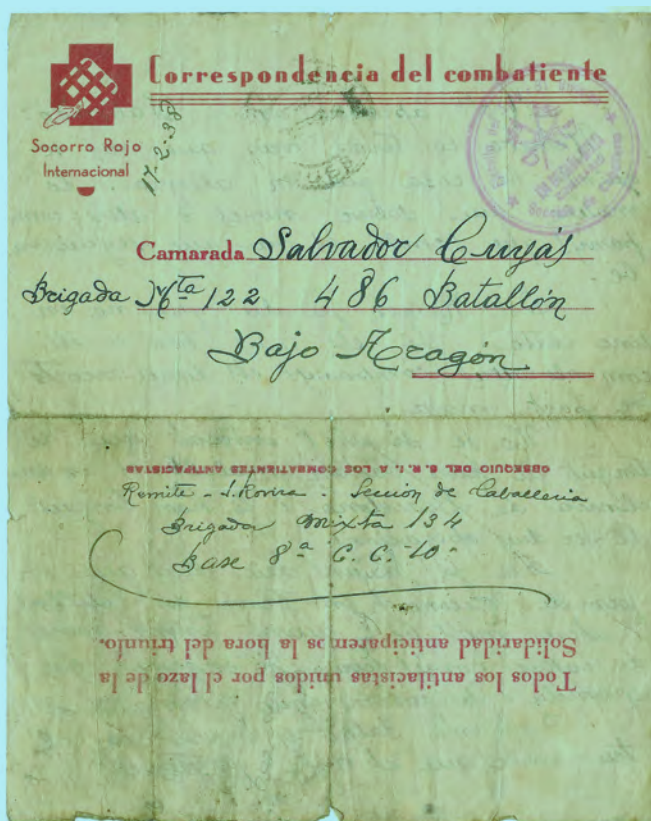 Correspondencia del combatiente
Socorro Rojo
Internacional
17-2-38
Camarada Salvador Cuyás
Brigada Mta 122 486 Batallón
Bajo Aragón
OBSEQUIO DEL S. R. I. A LOS COMBATIENTES ANTIFACISTAS
Remite - J. Rovira - Sección de Caballeria
Brigada Mixta 134
Base 8ª C. C. 10-
Todos los antifacistas unidos por el lazo de la
Solidaridad anticiparemos la hora del triunfo.